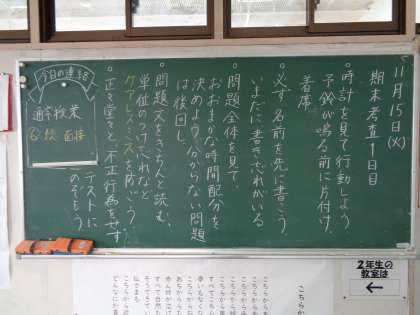 11月15日(火)
期末考査1日目
・時計を見て行動しよう
予鈴が鳴る前に片付け、
着席
・必ず名前を先に書こう
いまだに書き忘れがいる
・問題全体を見て、
おおまかな時間配分を
決めよう、分からない問題
は後回し、
・問題文をきちんと読む、
単位のつけ忘れなど
ケアレスミスを防ごう、
・正々堂々と、不正行為をせず
テストに
のぞもう
今日の連絡
通常授業
面接
2年生の
教室は
←